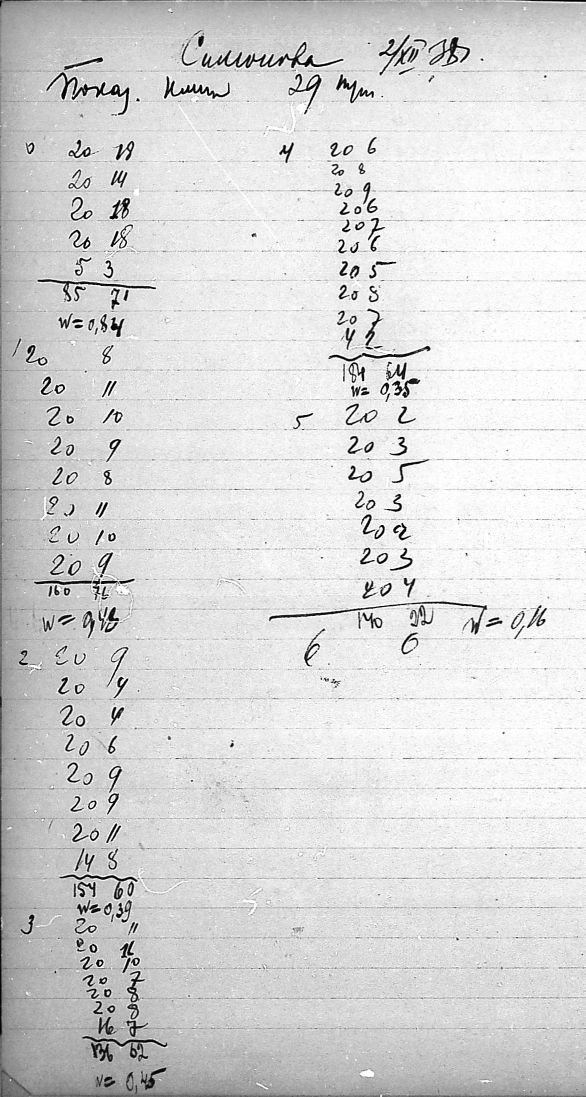 Симонова 2/XII 38г.
Показ.
29
0 20 18
20 14
20 18
20 18
5 3
85 71
W=0,84
1 20 8
20 11
20 10
20 9
20 8
20 11
20 10
20 9
160 76
W=0,48
2 20 9
20 4
20 4
20 6
20 9
20 9
20 11
14 8
154 60
W=0,39
3 20 11
20 11
20 10
20 7
20 8
20 8
16 7
136 62
W=0,45
4 20 6
20 8
20 9
20 6
20 7
20 6
20 5
20 8
20 7
4 2
184 64
W=0,35
5 20 2
20 3
20 5
20 3
20 2
20 3
20 4
140 22 W=0,16
6 0